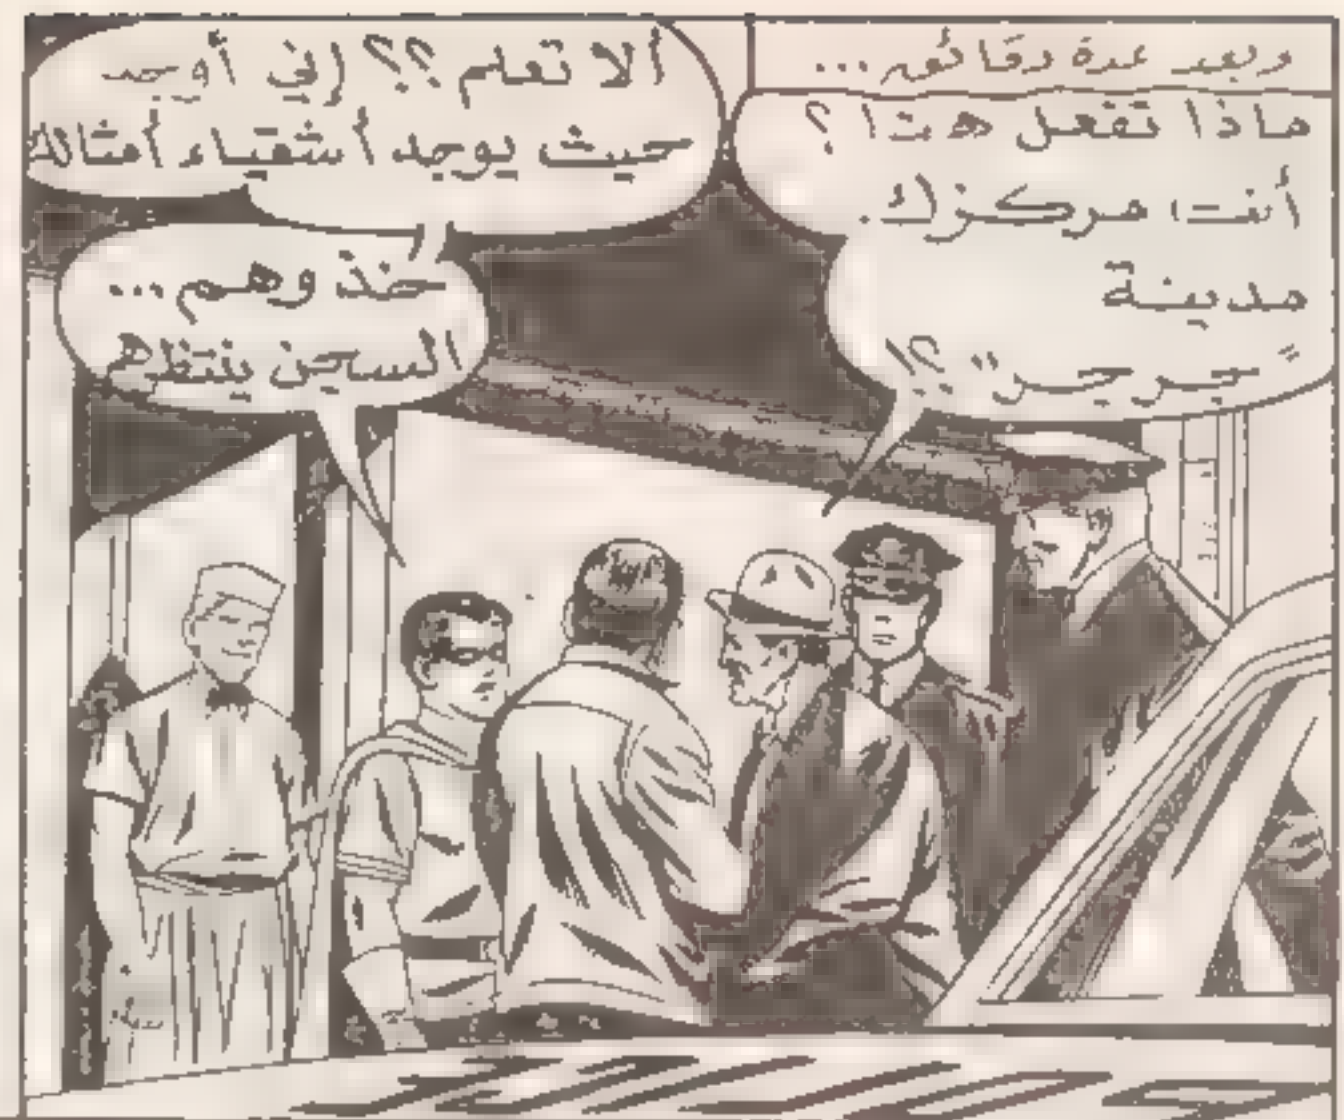 وبعد عدة دقائق...
ماذا تفعل هنا؟
أنت، مركزك.
مدينة
"جرجر"؟!
ألا تعلم؟؟ إني أوجد
حيث يوجد أشقياء أمثالك
خذوهم...
السجن ينتظرهم